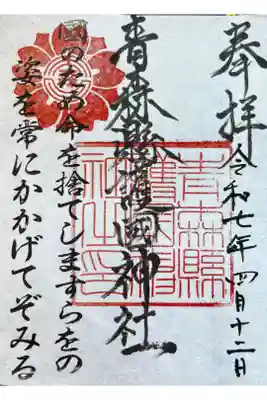 奉拝
令和七年四月十二日
青森縣護國神社
青森縣
護國神
社之印
國のため命を捨てしますらをの
姿を常にかかげてぞみる